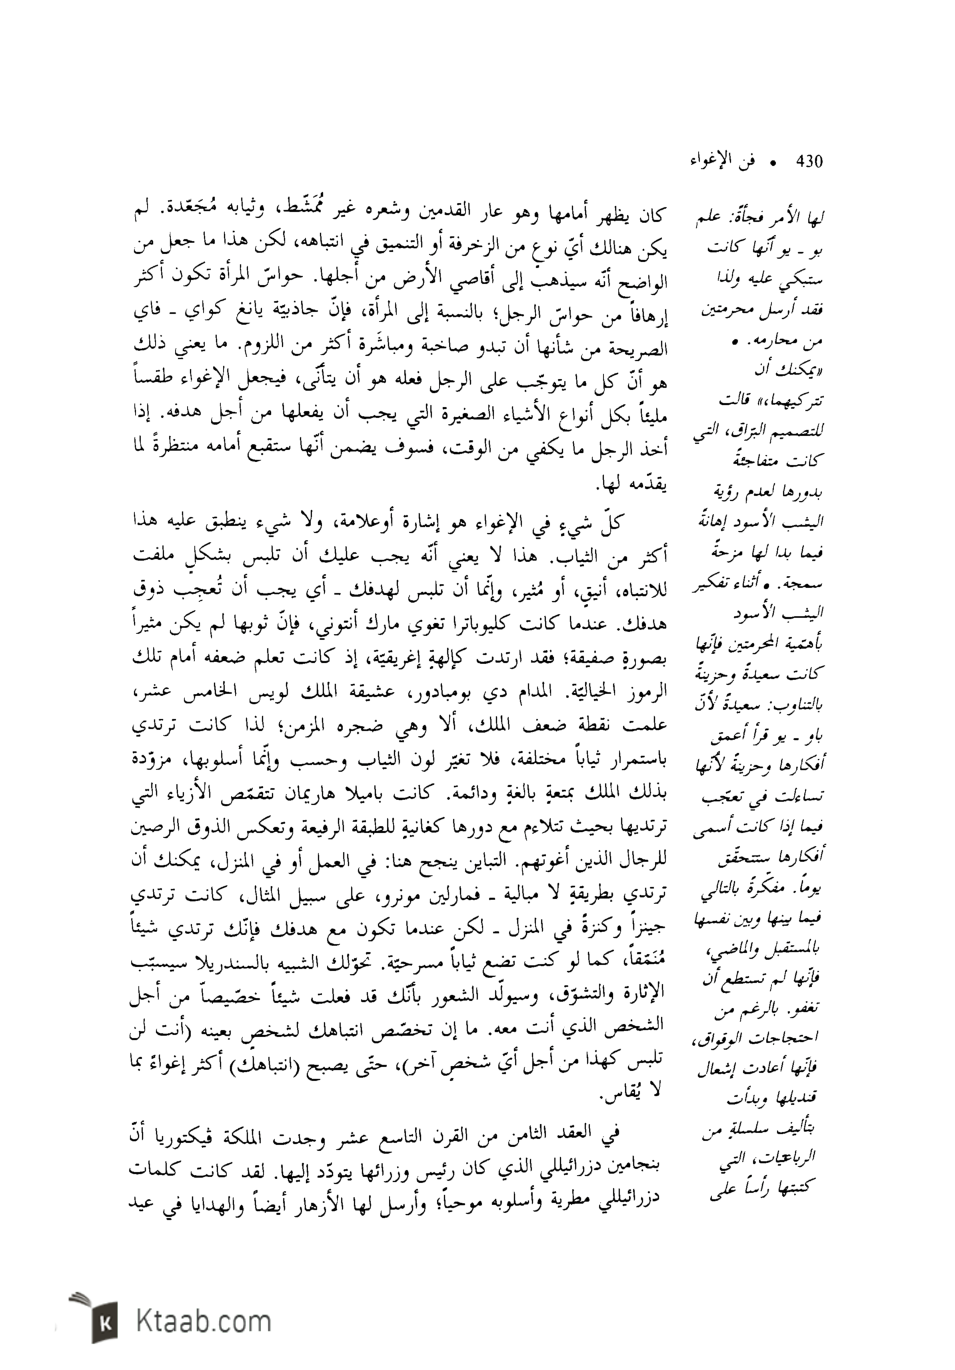 430 • فن الإغواء
كان يظهر أمامها وهو عار القدمين وشعره غير مُمَشّط، وثيابه مُجَعّدة. لم
يكن هنالك أيّ نوعٍ من الزخرفة أو التنميق في انتباهه، لكن هذا ما جعل من
الواضح أنّه سيذهب إلى أقاصي الأرض من أجلها. حواسّ المرأة تكون أكثر
إرهافاً من حواسّ الرجل؛ بالنسبة إلى المرأة، فإنّ جاذبيّة يانغ كواي ـ فاي
الصريحة من شأنها أن تبدو صاخبة ومباشَرة أكثر من اللزوم. ما يعني ذلك
هو أنّ كل ما يتوجّب على الرجل فعله هو أن يتأنّى، فيجعل الإغواء طقساً
مليئاً بكل أنواع الأشياء الصغيرة التي يجب أن يفعلها من أجل هدفه. إذا
أخذ الرجل ما يكفي من الوقت، فسوف يضمن أنّها ستقبع أمامه منتظرةً لما
يقدّمه لها.
كلّ شيءٍ في الإغواء هو إشارة أوعلامة، ولا شيء ينطبق عليه هذا
أكثر من الثياب. هذا لا يعني أنّه يجب عليك أن تلبس بشكلٍ ملفت
للانتباه، أنيقٍ، أو مُثير، وإنّما أن تلبس لهدفك ـ أي يجب أن تُعجِب ذوق
هدفك. عندما كانت كليوباترا تغوي مارك أنتوني، فإنّ ثوبها لم يكن مثيراً
بصورةٍ صفيقة؛ فقد ارتدت كإلهةٍ إغريقيّة، إذ كانت تعلم ضعفه أمام تلك
الرموز الخياليّة. المدام دي بومبادور، عشيقة الملك لويس الخامس عشر،
علمت نقطة ضعف الملك، ألا وهي ضجره المزمن؛ لذا كانت ترتدي
باستمرار ثياباً مختلفة، فلا تغيّر لون الثياب وحسب وإنّما أسلوبها، مزوّدة
بذلك الملك بمتعةٍ بالغةٍ ودائمة. كانت باميلا هاريمان تتقمّص الأزياء التي
ترتديها بحيث تتلاءم مع دورها كغانيةٍ للطبقة الرفيعة وتعكس الذوق الرصين
للرجال الذين أغوتهم. التباين ينجح هنا: في العمل أو في المنزل، يمكنك أن
ترتدي بطريقةٍ لا مبالية ـ فمارلين مونرو، على سبيل المثال، كانت ترتدي
جينزاً وكنزةً في المنزل ـ لكن عندما تكون مع هدفك فإنّك ترتدي شيئاً
مُنَمّقاً، كما لو كنت تضع ثياباً مسرحيّة. تحوّلك الشبيه بالسندريلا سيسبّب
الإثارة والتشوّق، وسيولّد الشعور بأنّك قد فعلت شيئاً خصّيصاً من أجل
الشخص الذي أنت معه. ما إن تخصّص انتباهك لشخصٍ بعينه (أنت لن
تلبس كهذا من أجل أيّ شخصٍ آخر)، حتّى يصبح (انتباهك) أكثر إغواءً بما
لا يُقاس.
في العقد الثامن من القرن التاسع عشر وجدت الملكة ڤيكتوريا أنّ
بنجامين دزرائيللي الذي كان رئيس وزرائها يتودّد إليها. لقد كانت كلمات
دزرائيللي مطرية وأسلوبه موحياً؛ وأرسل لها الأزهار أيضاً والهدايا في عيد
لها الأمر فجأةً: علم
بو ـ يو أنّها كانت
ستبكي عليه ولذا
فقد أرسل محرمتين
من محارمه. •
«يمكنك أن
تتركيهما،» قالت
للتصميم البرّاق، التي
كانت متفاجئةً
بدورها لعدم رؤية
اليشب الأسود إهانةً
فيما بدا لها مزحةً
سمجة. • أثناء تفكير
اليشب الأسود
بأهمّية المحرمتين فإنّها
كانت سعيدةً وحزينةً
بالتناوب: سعيدةً لأنّ
باو ـ يو قرأ أعمق
أفكارها وحزينةً لأنّها
تساءلت في تعجّب
فيما إذا كانت أسمى
أفكارها ستتحقّق
يوماً. مفكّرةً بالتالي
فيما بينها وبين نفسها
بالمستقبل والماضي،
فإنّها لم تستطع أن
تغفو. بالرغم من
احتجاجات الوقواق،
فإنّها أعادت إشعال
قنديلها وبدأت
بتأليف سلسلةٍ من
الرباعيّات، التي
كتبتها رأساً على
Ktaab.com